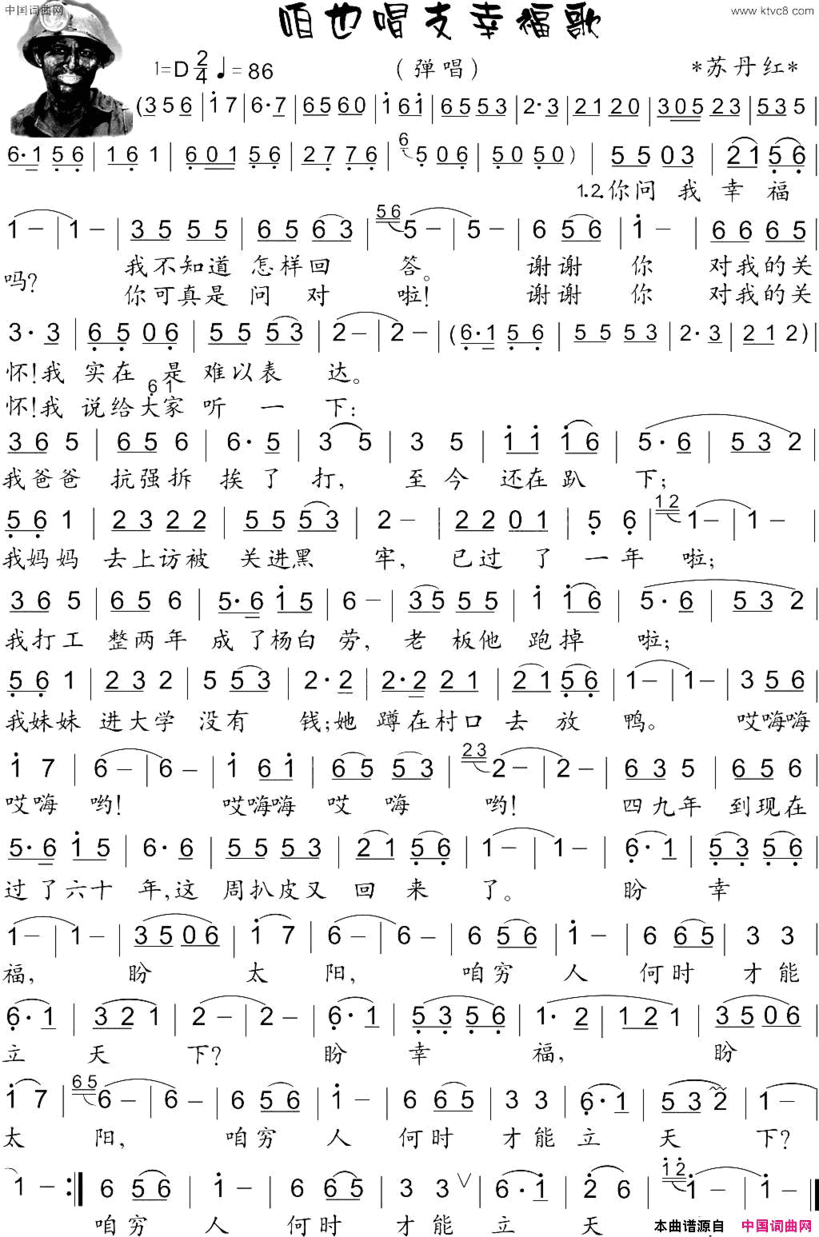 中国词曲网
www.ktvc8.com
咱也唱支幸福歌
1=D 2/4 ♩=86
（弹唱）
*苏丹红*
(3 5 6 | i 7 | 6· 7 | 6 5 6 0 | i 6 i | 6 5 5 3 | 2· 3 | 2 1 2 0 | 3 0 5 2 3 | 5 3 5 |
6· 1 5 6 | 1 6 1 | 6 0 1 5 6 | 2 7 7 6 | 6 5 0 6 | 5 0 5 0 ) | 5 5 0 3 | 2 1 5 6 |
1.2.你问 我 幸 福
1 – | 1 – | 3 5 5 5 | 6 5 6 3 | 5 6 5 – | 5 – | 6 5 6 | i – | 6 6 6 5 |
吗? 我不知道 怎样回 答。 谢谢 你 对我的关
你可真是 问 对 啦! 谢谢 你 对我的关
3· 3 | 6 5 0 6 | 5 5 5 3 | 2 – | 2 – | (6· 1 5 6 | 5 5 5 3 | 2· 3 | 2 1 2 ) |
怀!我 实在 是 难以表 达。
6 1
怀!我 说给大家 听 一 下:
3 6 5 | 6 5 6 | 6· 5 | 3 5 | 3 5 | i i i 6 | 5· 6 | 5 3 2 |
我爸爸 抗强拆 挨了 打, 至今 还在趴 下;
5 6 1 | 2 3 2 2 | 5 5 5 3 | 2 – | 2 2 0 1 | 5 6 | 1 2 1 – | 1 –
我妈妈 去上访被 关进黑 牢, 已过 了 一 年 啦;
3 6 5 | 6 5 6 | 5· 6 i 5 | 6 – | 3 5 5 5 | i i 6 | 5· 6 | 5 3 2 |
我打工 整两年 成了杨白 劳, 老 板他 跑掉 啦;
5 6 1 | 2 3 2 | 5 5 3 | 2· 2 | 2· 2 2 1 | 2 1 5 6 | 1 – | 1 – | 3 5 6 |
我妹妹 进大学 没有 钱;她 蹲在村口 去 放 鸭。 哎嗨嗨
i 7 | 6 – | 6 – | i 6 i | 6 5 5 3 | 2 3 2 – | 2 – | 6 3 5 | 6 5 6 |
哎嗨 哟! 哎嗨嗨 哎 嗨 哟! 四九年 到现在
5· 6 i 5 | 6· 6 | 5 5 5 3 | 2 1 5 6 | 1 – | 1 – | 6· 1 | 5 3 5 6 |
过了六十 年,这 周扒皮又 回 来 了。 盼 幸
1 – | 1 – | 3 5 0 6 | i 7 | 6 – | 6 – | 6 5 6 | i – | 6 6 5 | 3 3 |
福, 盼 太 阳, 咱穷 人 何时 才能
6· 1 | 3 2 1 | 2 – | 2 – | 6· 1 | 5 3 5 6 | 1· 2 | 1 2 1 | 3 5 0 6 |
立 天 下? 盼 幸 福, 盼
i 7 | 6 5 6 – | 6 – | 6 5 6 | i – | 6 6 5 | 3 3 | 6· 1 | 5 3 2 | 1 – |
太 阳, 咱穷 人 何时 才能 立 天 下?
1 – :‖ 6 5 6 | i – | 6 6 5 | 3 3 ∨ | 6· i | 2 6 | i 2 i – | i – ‖
咱穷 人 何时 才能 立 天
本曲谱源自 中国词曲网